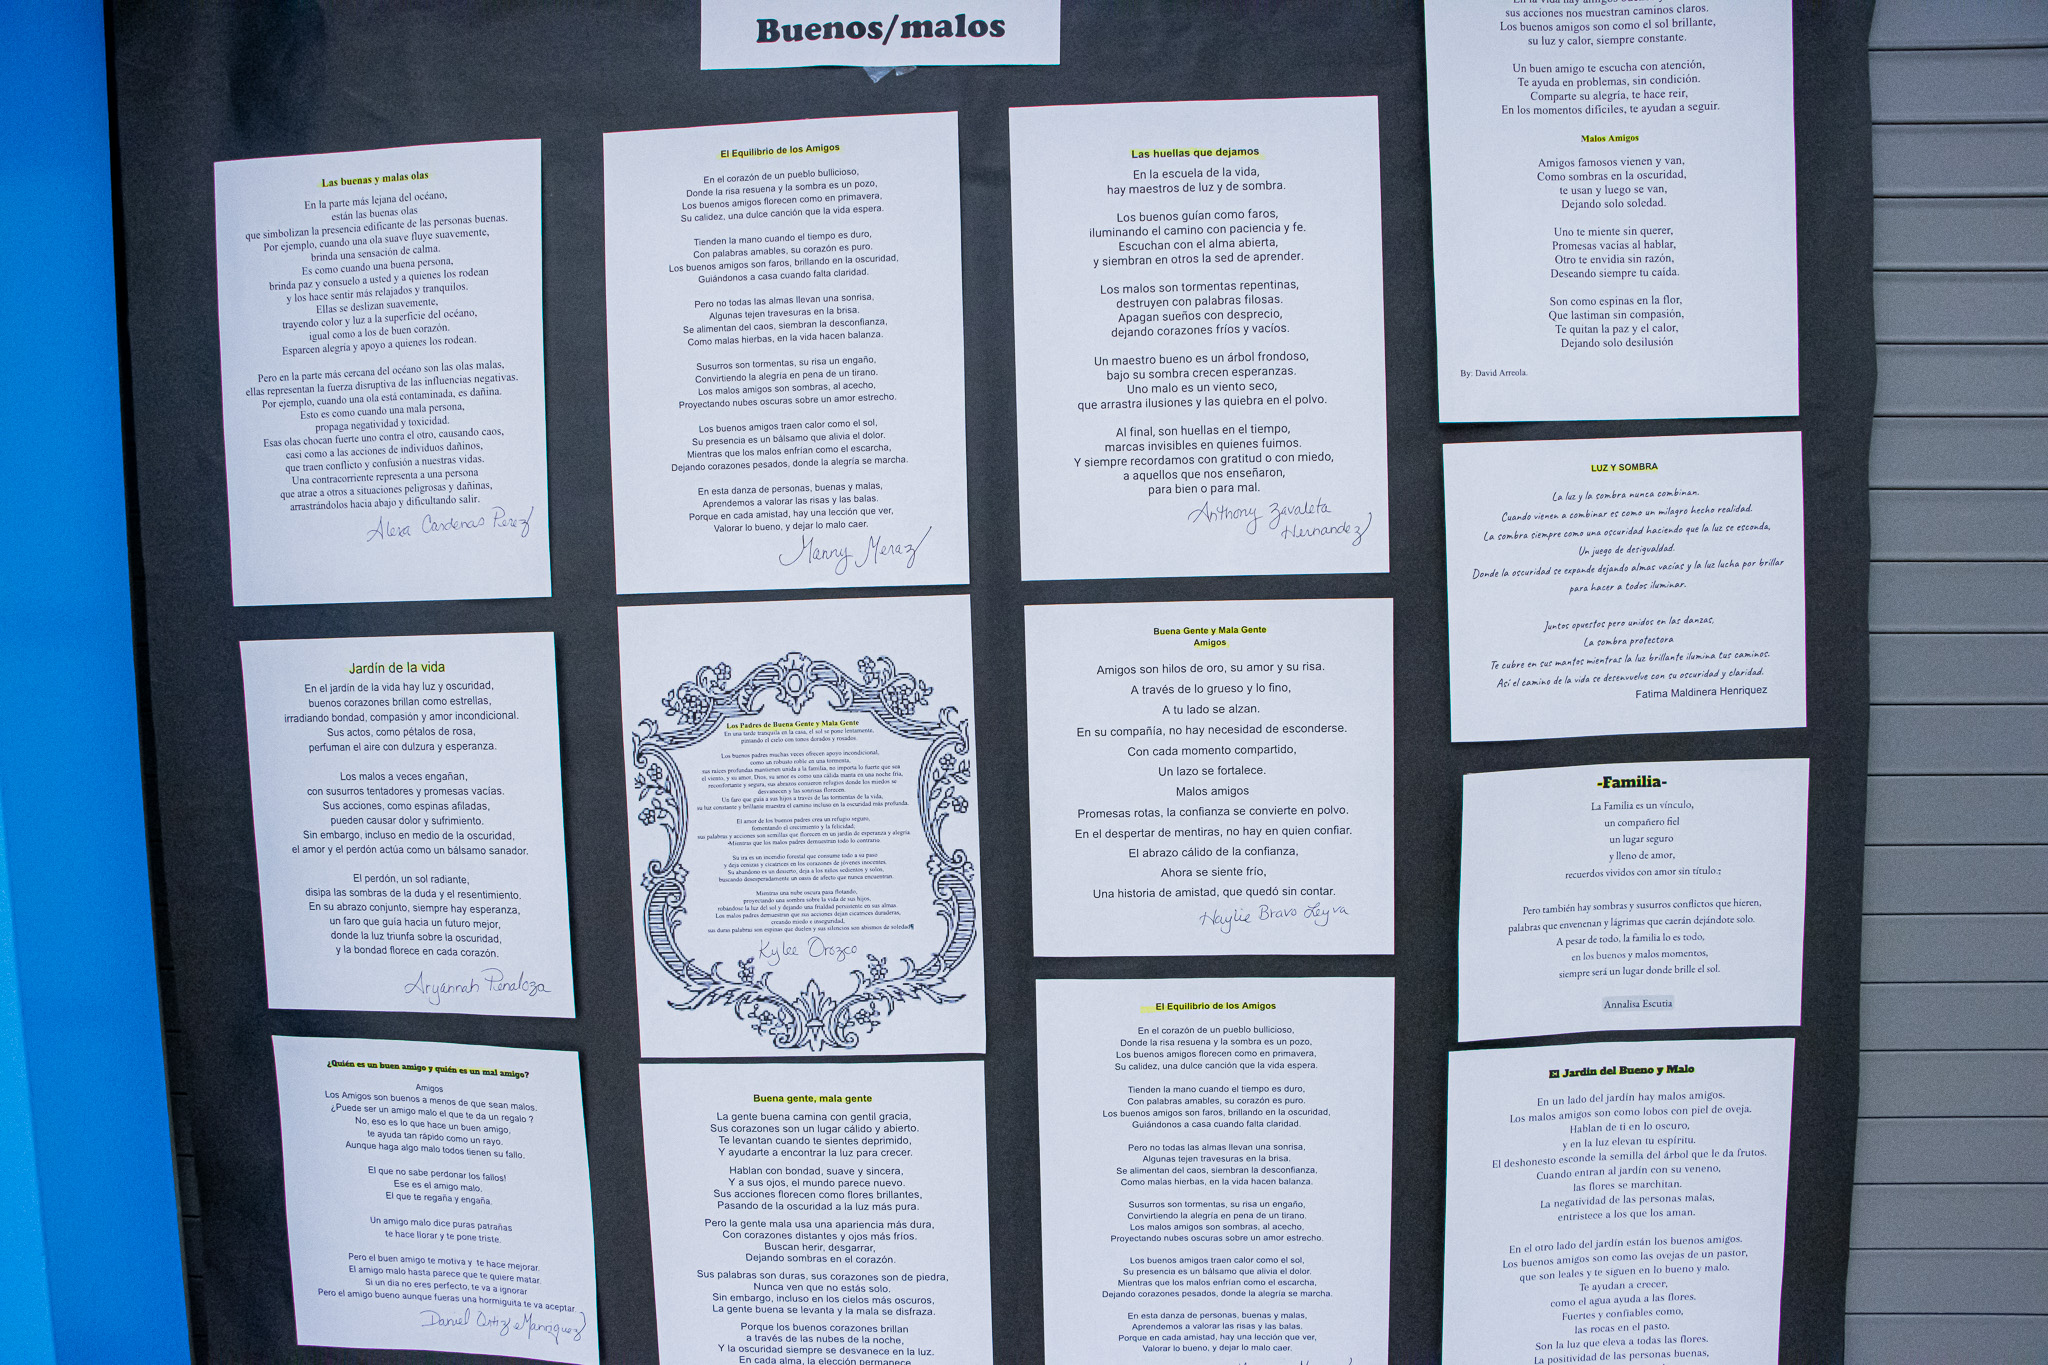 Buenos/malos
Las buenas y malas olas
En la parte más lejana del océano,
están las buenas olas
que simbolizan la presencia edificante de las personas buenas.
Por ejemplo, cuando una ola suave fluye suavemente,
brinda una sensación de calma.
Es como cuando una buena persona,
brinda paz y consuelo a usted y a quienes los rodean
y los hace sentir más relajados y tranquilos.
Ellas se deslizan suavemente,
trayendo color y luz a la superficie del océano,
igual como a los de buen corazón.
Esparcen alegría y apoyo a quienes los rodean.
Pero en la parte más cercana del océano son las olas malas,
ellas representan la fuerza disruptiva de las influencias negativas.
Por ejemplo, cuando una ola está contaminada, es dañina.
Esto es como cuando una mala persona,
propaga negatividad y toxicidad.
Esas olas chocan fuerte uno contra el otro, causando caos,
casi como a las acciones de individuos dañinos,
que traen conflicto y confusión a nuestras vidas.
Una contracorriente representa a una persona
que atrae a otros a situaciones peligrosas y dañinas,
arrastrándolos hacia abajo y dificultando salir.
Alexa Cardenas Perez
Jardín de la vida
En el jardín de la vida hay luz y oscuridad,
buenos corazones brillan como estrellas,
irradiando bondad, compasión y amor incondicional.
Sus actos, como pétalos de rosa,
perfuman el aire con dulzura y esperanza.
Los malos a veces engañan,
con susurros tentadores y promesas vacías.
Sus acciones, como espinas afiladas,
pueden causar dolor y sufrimiento.
Sin embargo, incluso en medio de la oscuridad,
el amor y el perdón actúa como un bálsamo sanador.
El perdón, un sol radiante,
disipa las sombras de la duda y el resentimiento.
En su abrazo conjunto, siempre hay esperanza,
un faro que guía hacia un futuro mejor,
donde la luz triunfa sobre la oscuridad,
y la bondad florece en cada corazón.
Aryannah Penaloza
¿Quién es un buen amigo y quién es un mal amigo?
Amigos
Los Amigos son buenos a menos de que sean malos.
¿Puede ser un amigo malo el que te da un regalo ?
No, eso es lo que hace un buen amigo,
te ayuda tan rápido como un rayo.
Aunque haga algo malo todos tienen su fallo.
El que no sabe perdonar los fallos!
Ese es el amigo malo.
El que te regaña y engaña.
Un amigo malo dice puras patrañas
te hace llorar y te pone triste.
Pero el buen amigo te motiva y te hace mejorar.
El amigo malo hasta parece que te quiere matar.
Si un dia no eres perfecto, te va a ignorar
Pero el amigo bueno aunque fueras una hormiguita te va aceptar.
Daniel Ortiz
El Equilibrio de los Amigos
En el corazón de un pueblo bullicioso,
Donde la risa resuena y la sombra es un pozo,
Los buenos amigos florecen como en primavera,
Su calidez, una dulce canción que la vida espera.
Tienden la mano cuando el tiempo es duro,
Con palabras amables, su corazón es puro.
Los buenos amigos son faros, brillando en la oscuridad,
Guiándonos a casa cuando falta claridad.
Pero no todas las almas llevan una sonrisa,
Algunas tejen travesuras en la brisa.
Se alimentan del caos, siembran la desconfianza,
Como malas hierbas, en la vida hacen balanza.
Susurros son tormentas, su risa un engaño,
Convirtiendo la alegría en pena de un tirano.
Los malos amigos son sombras, al acecho,
Proyectando nubes oscuras sobre un amor estrecho.
Los buenos amigos traen calor como el sol,
Su presencia es un bálsamo que alivia el dolor.
Mientras que los malos enfrían como el escarcha,
Dejando corazones pesados, donde la alegría se marcha.
En esta danza de personas, buenas y malas,
Aprendemos a valorar las risas y las balas.
Porque en cada amistad, hay una lección que ver,
Valorar lo bueno, y dejar lo malo caer.
Manny Meraz
Los Padres de Buena Gente y Mala Gente
En una tarde tranquila en la casa, el sol se pone lentamente,
pintando el cielo con tonos dorados y rosados.
Los buenos padres muchas veces ofrecen apoyo incondicional,
como un robusto roble en una tormenta,
sus raíces profundas mantienen unida a la familia, no importa lo fuerte que sea
el viento, y su amor, Dios, su amor es como una cálida manta en una noche fría,
reconfortante y segura, sus abrazos contienen refugios donde los miedos se
desvanecen y las sonrisas florecen.
Un faro que guía a sus hijos a través de las tormentas de la vida,
su luz constante y brillante muestra el camino incluso en la oscuridad más profunda.
El amor de los buenos padres crea un refugio seguro,
fomentando el crecimiento y la felicidad;
sus palabras y acciones son semillas que florecen en un jardín de esperanza y alegría
Mientras que los malos padres demuestran todo lo contrario.
Su ira es un incendio forestal que consume todo a su paso
y deja cenizas y cicatrices en los corazones de jóvenes inocentes.
Su abandono es un desierto, deja a los niños sedientos y solos,
buscando desesperadamente un oasis de afecto que nunca encuentran.
Mientras una nube oscura pasa flotando,
proyectando una sombra sobre la vida de sus hijos,
robándose la luz del sol y dejando una frialdad persistente en sus almas.
Los malos padres demuestran que sus acciones dejan cicatrices duraderas,
creando miedo e inseguridad,
sus duras palabras son espinas que duelen y sus silencios son abismos de soledad¶
Kylee Orozco
Buena gente, mala gente
La gente buena camina con gentil gracia,
Sus corazones son un lugar cálido y abierto.
Te levantan cuando te sientes deprimido,
Y ayudarte a encontrar la luz para crecer.
Hablan con bondad, suave y sincera,
Y a sus ojos, el mundo parece nuevo.
Sus acciones florecen como flores brillantes,
Pasando de la oscuridad a la luz más pura.
Pero la gente mala usa una apariencia más dura,
Con corazones distantes y ojos más fríos.
Buscan herir, desgarrar,
Dejando sombras en el corazón.
Sus palabras son duras, sus corazones son de piedra,
Nunca ven que no estás solo.
Sin embargo, incluso en los cielos más oscuros,
La gente buena se levanta y la mala se disfraza.
Porque los buenos corazones brillan
a través de las nubes de la noche,
Y la oscuridad siempre se desvanece en la luz.
En cada alma, la elección permanece
Las huellas que dejamos
En la escuela de la vida,
hay maestros de luz y de sombra.
Los buenos guían como faros,
iluminando el camino con paciencia y fe.
Escuchan con el alma abierta,
y siembran en otros la sed de aprender.
Los malos son tormentas repentinas,
destruyen con palabras filosas.
Apagan sueños con desprecio,
dejando corazones fríos y vacíos.
Un maestro bueno es un árbol frondoso,
bajo su sombra crecen esperanzas.
Uno malo es un viento seco,
que arrastra ilusiones y las quiebra en el polvo.
Al final, son huellas en el tiempo,
marcas invisibles en quienes fuimos.
Y siempre recordamos con gratitud o con miedo,
a aquellos que nos enseñaron,
para bien o para mal.
Anthony Zavaleta
Hernandez
Buena Gente y Mala Gente
Amigos
Amigos son hilos de oro, su amor y su risa.
A través de lo grueso y lo fino,
A tu lado se alzan.
En su compañía, no hay necesidad de esconderse.
Con cada momento compartido,
Un lazo se fortalece.
Malos amigos
Promesas rotas, la confianza se convierte en polvo.
En el despertar de mentiras, no hay en quien confiar.
El abrazo cálido de la confianza,
Ahora se siente frío,
Una historia de amistad, que quedó sin contar.
Haylie Bravo Leyva
El Equilibrio de los Amigos
En el corazón de un pueblo bullicioso,
Donde la risa resuena y la sombra es un pozo,
Los buenos amigos florecen como en primavera,
Su calidez, una dulce canción que la vida espera.
Tienden la mano cuando el tiempo es duro,
Con palabras amables, su corazón es puro.
Los buenos amigos son faros, brillando en la oscuridad,
Guiándonos a casa cuando falta claridad.
Pero no todas las almas llevan una sonrisa,
Algunas tejen travesuras en la brisa.
Se alimentan del caos, siembran la desconfianza,
Como malas hierbas, en la vida hacen balanza.
Susurros son tormentas, su risa un engaño,
Convirtiendo la alegría en pena de un tirano.
Los malos amigos son sombras, al acecho,
Proyectando nubes oscuras sobre un amor estrecho.
Los buenos amigos traen calor como el sol,
Su presencia es un bálsamo que alivia el dolor.
Mientras que los malos enfrían como el escarcha,
Dejando corazones pesados, donde la alegría se marcha.
En esta danza de personas, buenas y malas,
Aprendemos a valorar las risas y las balas.
Porque en cada amistad, hay una lección que ver,
Valorar lo bueno, y dejar lo malo caer.
sus acciones nos muestran caminos claros.
Los buenos amigos son como el sol brillante,
su luz y calor, siempre constante.
Un buen amigo te escucha con atención,
Te ayuda en problemas, sin condición.
Comparte su alegría, te hace reír,
En los momentos difíciles, te ayudan a seguir.
Malos Amigos
Amigos famosos vienen y van,
Como sombras en la oscuridad,
te usan y luego se van,
Dejando solo soledad.
Uno te miente sin querer,
Promesas vacías al hablar,
Otro te envidia sin razón,
Deseando siempre tu caída.
Son como espinas en la flor,
Que lastiman sin compasión,
Te quitan la paz y el calor,
Dejando solo desilusión
By: David Arreola.
LUZ Y SOMBRA
La luz y la sombra nunca combinan.
Cuando vienen a combinar es como un milagro hecho realidad.
La sombra siempre como una oscuridad haciendo que la luz se esconda,
Un juego de desigualdad.
Donde la oscuridad se expande dejando almas vacías y la luz lucha por brillar
para hacer a todos iluminar.
Juntos opuestos pero unidos en las danzas,
La sombra protectora
Te cubre en sus mantos mientras la luz brillante ilumina tus caminos.
Así el camino de la vida se desenvuelve con su oscuridad y claridad.
Fatima Maldinera Henriquez
-Familia-
La Familia es un vínculo,
un compañero fiel
un lugar seguro
y lleno de amor,
recuerdos vividos con amor sin título.;
Pero también hay sombras y susurros conflictos que hieren,
palabras que envenenan y lágrimas que caerán dejándote solo.
A pesar de todo, la familia lo es todo,
en los buenos y malos momentos,
siempre será un lugar donde brille el sol.
Annalisa Escutia
El Jardin del Bueno y Malo
En un lado del jardín hay malos amigos.
Los malos amigos son como lobos con piel de oveja.
Hablan de ti en lo oscuro,
y en la luz elevan tu espíritu.
El deshonesto esconde la semilla del árbol que le da frutos.
Cuando entran al jardín con su veneno,
las flores se marchitan.
La negatividad de las personas malas,
entristece a los que los aman.
En el otro lado del jardín están los buenos amigos.
Los buenos amigos son como las ovejas de un pastor,
que son leales y te siguen en lo bueno y malo.
Te ayudan a crecer,
como el agua ayuda a las flores.
Fuertes y confiables como,
las rocas en el pasto.
Son la luz que eleva a todas las flores.
La positividad de las personas buenas,